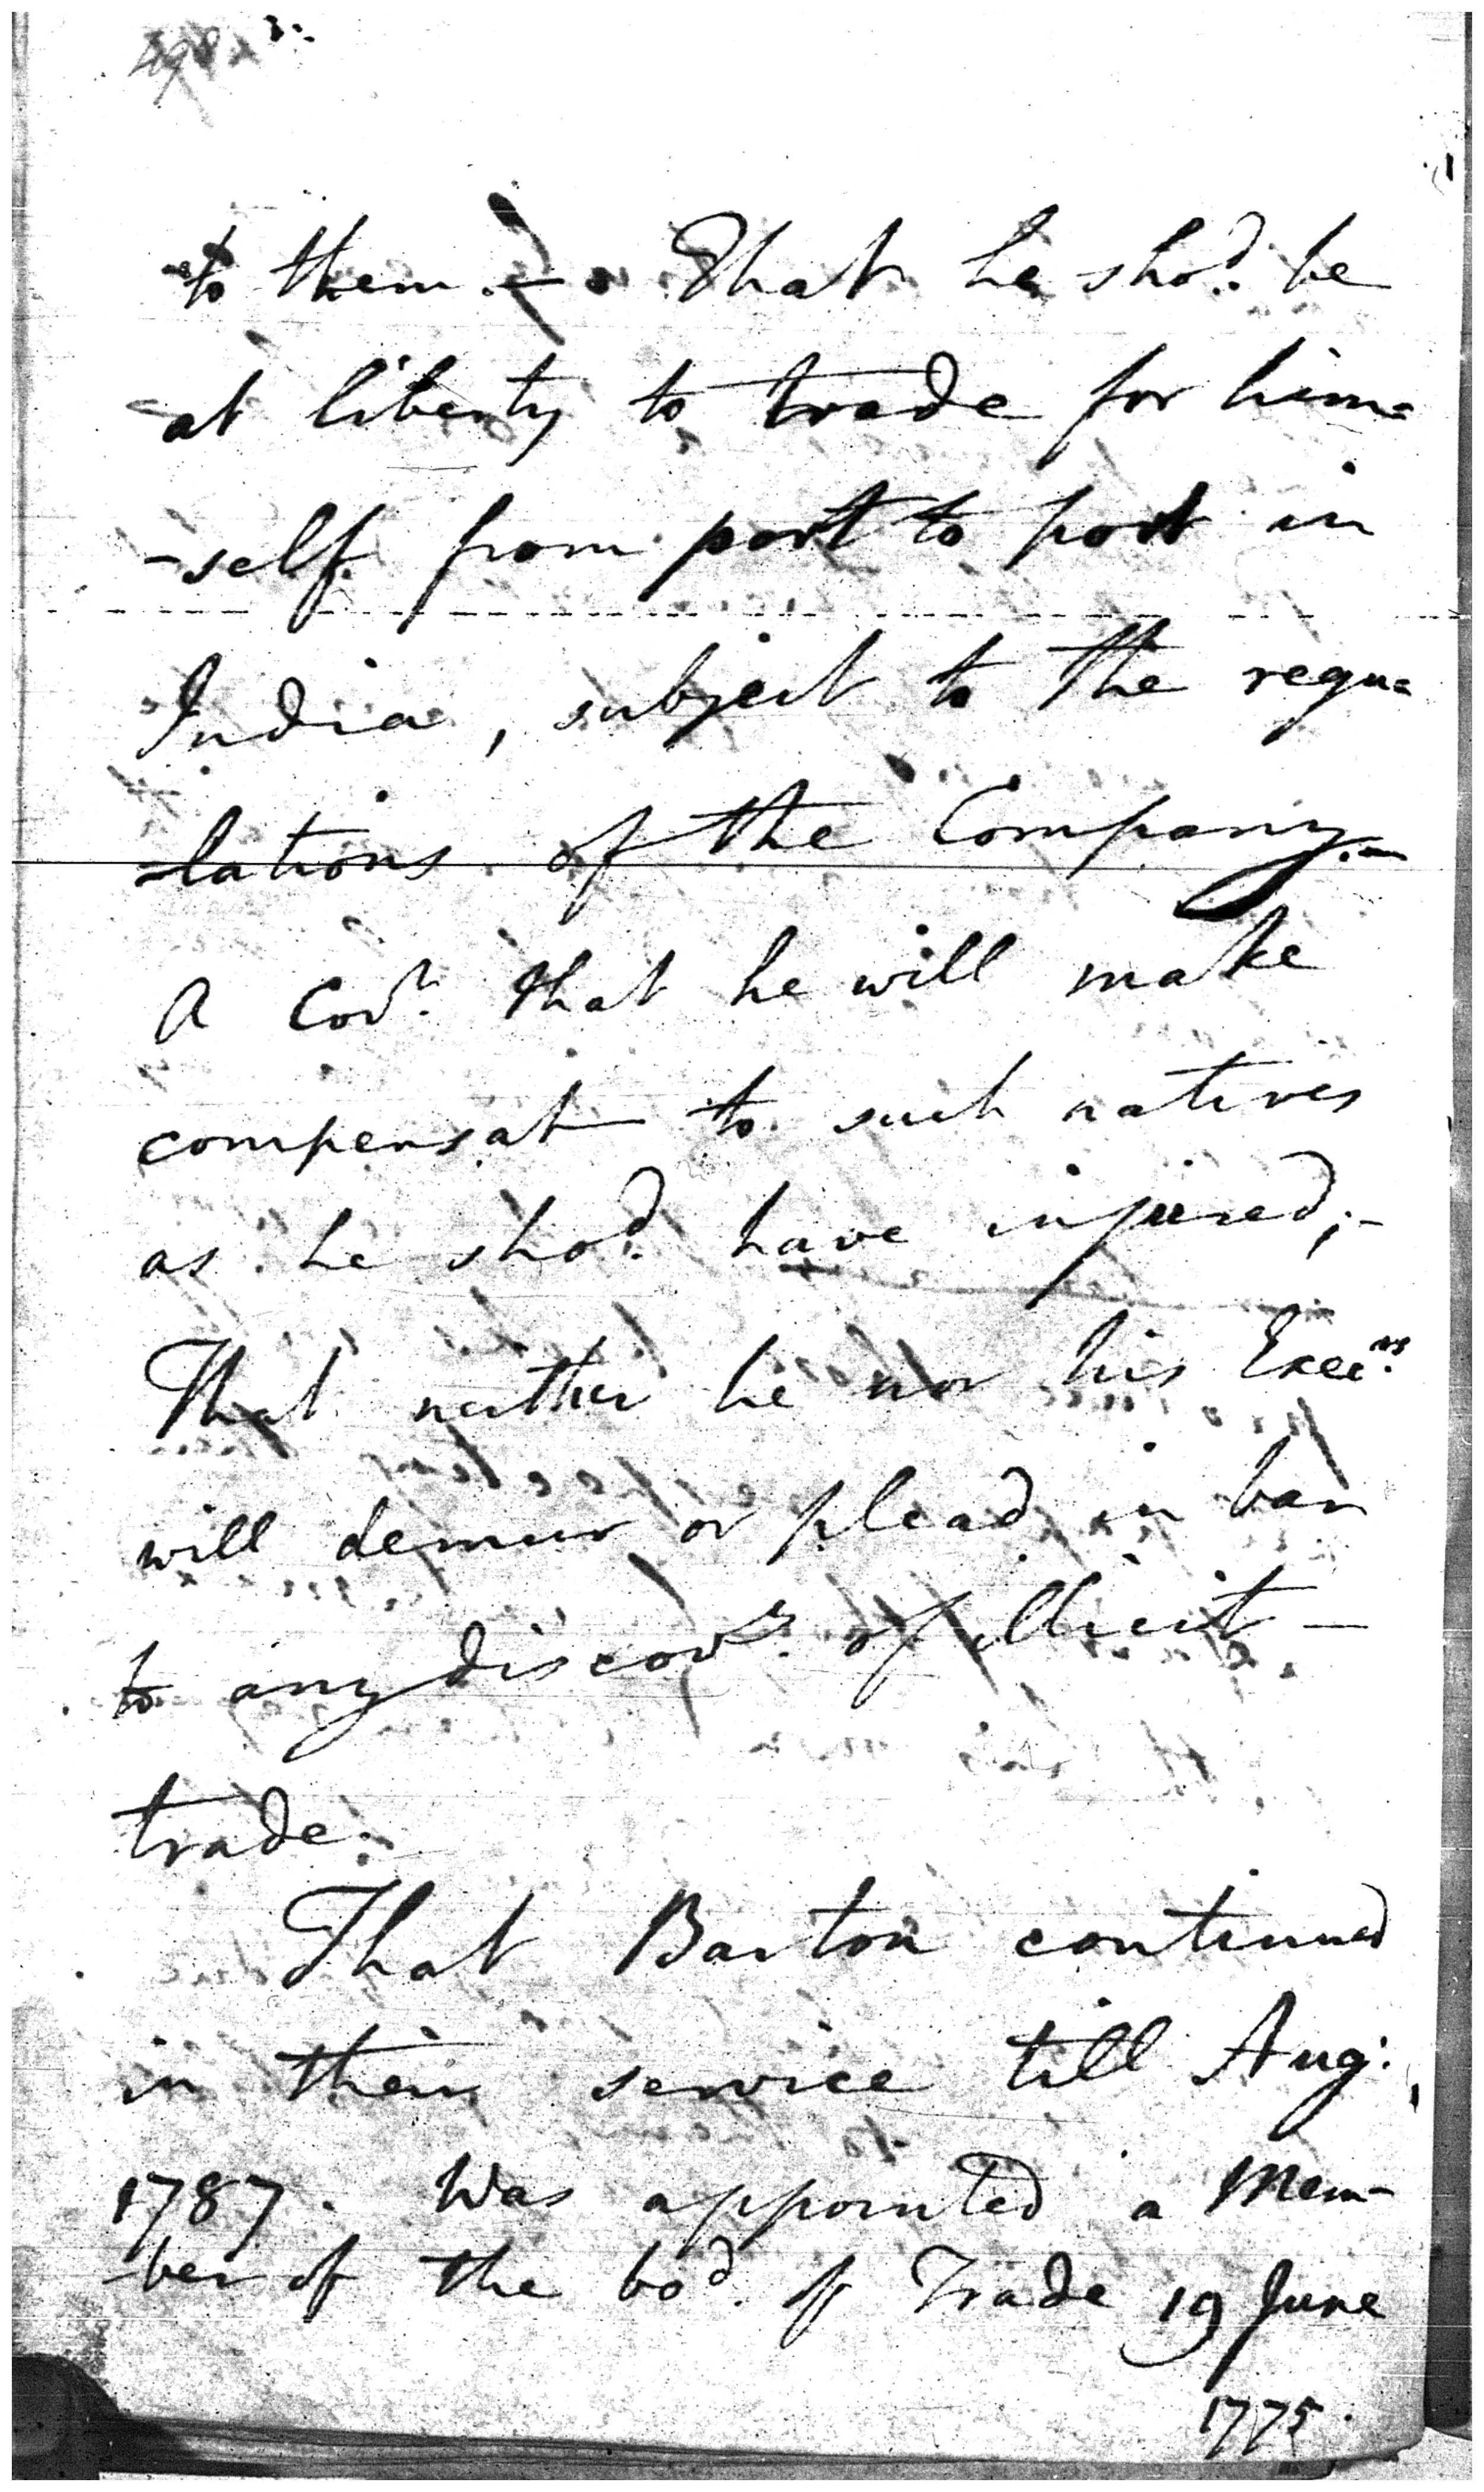 to them. — That he shod. be
at liberty to trade for him=
-self from port to port in
India, subject to the regu=
-lations of the Company. —
A Covt. that he will make
compensat— to such natives
as he shod. have injured; —
That neither he nor his Exec.rs
will demur or plead in bar
to any discovy. of illicit —
trade.
That Barton continued
in their service till Aug:
1787. Was appointed a Mem-
-ber of the bod. of Trade 19 June
1775.